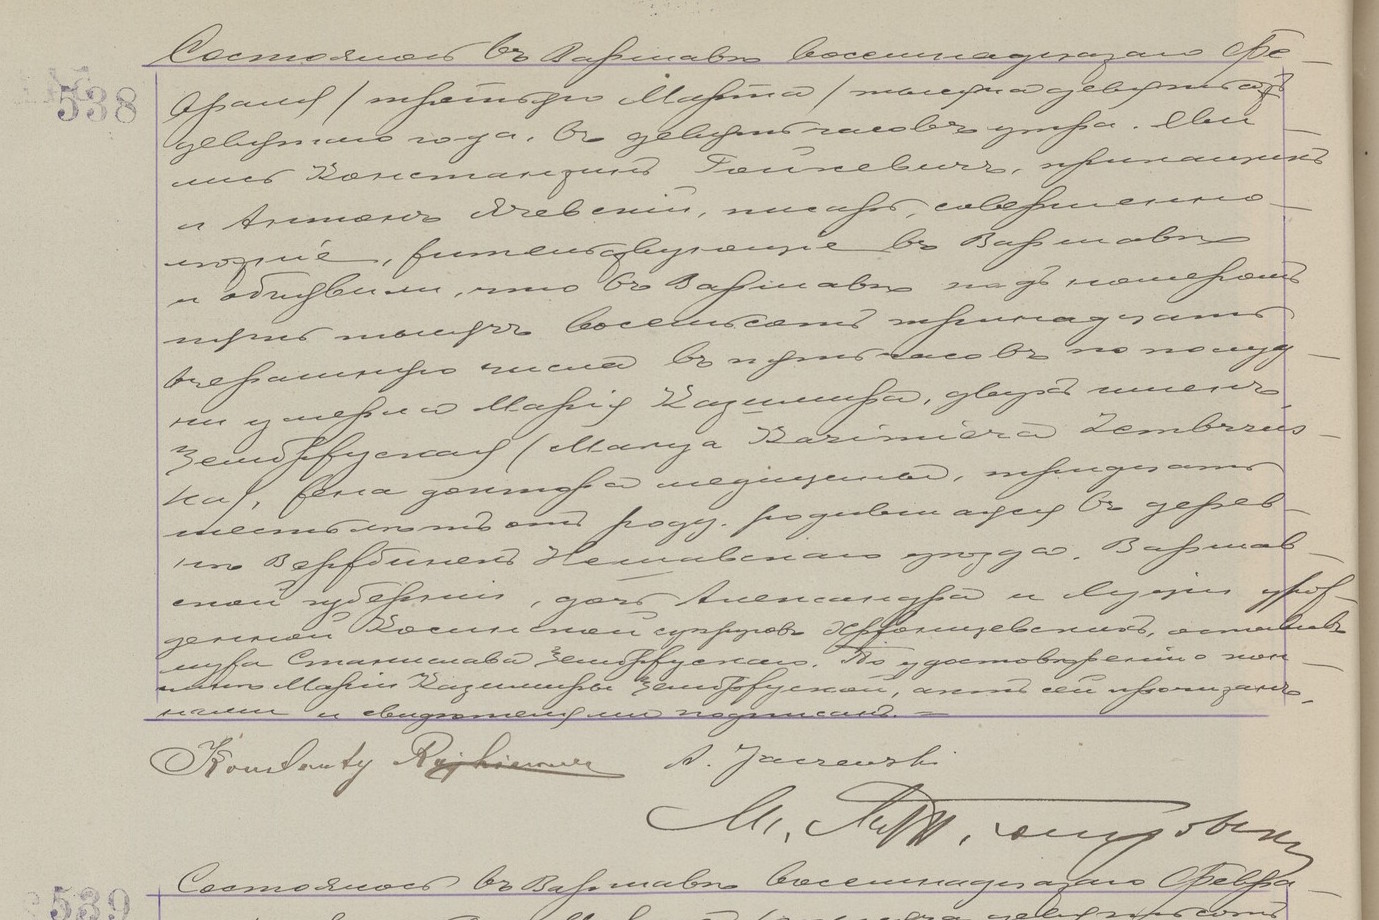 538
Состоялось въ Варшавѣ восемнадцатаго Фе-
враля / третьяго Марта / тысяча девятьсотъ
девятаго года, въ девять часовъ утра. Яви
лись Константинъ приказчикъ
и Антонъ Ячевскій, писарь, совершенно-
лѣтніе, жительствующіе въ Варшавѣ
и объявили, что въ Варшавѣ подъ номеромъ
пять тысячъ восемьсотъ тринадцать
вчерашняго числа въ пять часовъ по полуд
ни умерла Марія Казимира, двухъ именъ,
Зембржуская / Marya Kazimiera Zembrzus
ka /, жена доктора медицины, тридцать
шесть лѣтъ отъ роду, родившаяся въ дерев-
нѣ Вержбинекъ Нешавскаго уѣзда, Варшав-
ской губерніи, дочь Александра и Луціи урож-
денной Косинской супруговъ оставивъ
мужа Станислава Зембржускаго. По удостовѣреніи о кон
чинѣ Маріи Казимиры Зембржуской, актъ сей прочитанъ,
нами и свидѣтелями подписанъ. =
Konstanty A. Jaczewski
М.
539
Состоялось въ Варшавѣ восемнадцатаго Февра-